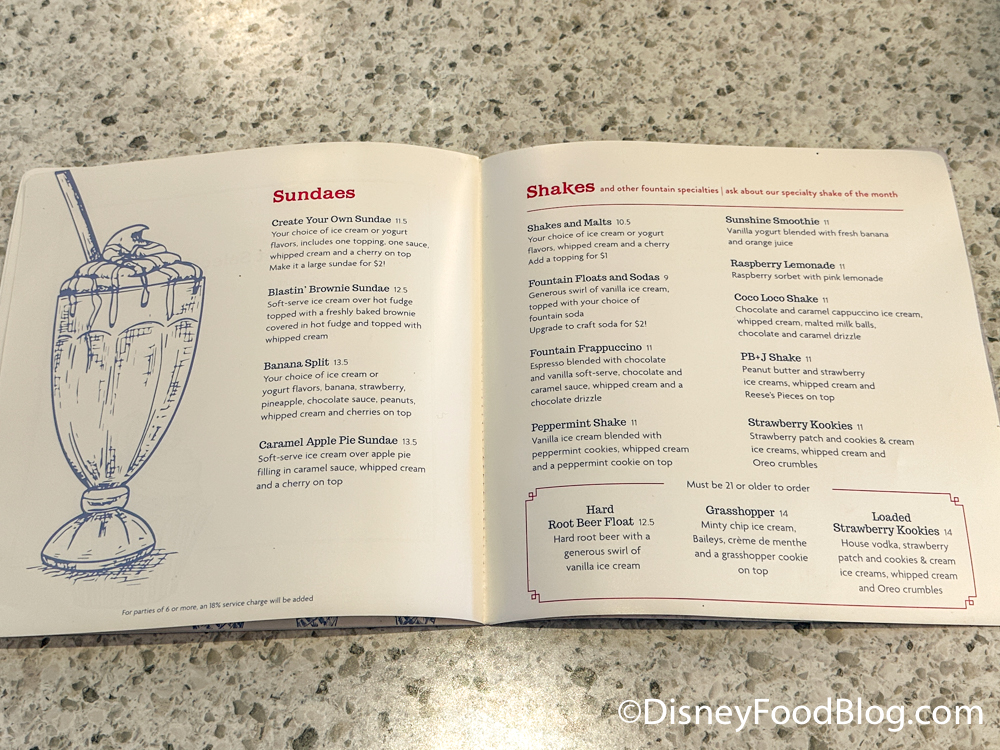 Sundaes
Create Your Own Sundae 11.5
Your choice of ice cream or yogurt
flavors, includes one topping, one sauce,
whipped cream and a cherry on top
Make it a large sundae for $2!
Blastin' Brownie Sundae 12.5
Soft-serve ice cream over hot fudge
topped with a freshly baked brownie
covered in hot fudge and topped with
whipped cream
Banana Split 13.5
Your choice of ice cream or
yogurt flavors, banana, strawberry,
pineapple, chocolate sauce, peanuts,
whipped cream and cherries on top
Caramel Apple Pie Sundae 13.5
Soft-serve ice cream over apple pie
filling in caramel sauce, whipped cream
and a cherry on top
For parties of 6 or more, an 18% service charge will be added
Shakes and other fountain specialties | ask about our specialty shake of the month
Shakes and Malts 10.5
Your choice of ice cream or yogurt
flavors, whipped cream and a cherry
Add a topping for $1
Fountain Floats and Sodas 9
Generous swirl of vanilla ice cream,
topped with your choice of
fountain soda
Upgrade to craft soda for $2!
Fountain Frappuccino 11
Espresso blended with chocolate
and vanilla soft-serve, chocolate and
caramel sauce, whipped cream and a
chocolate drizzle
Peppermint Shake 11
Vanilla ice cream blended with
peppermint cookies, whipped cream
and a peppermint cookie on top
Sunshine Smoothie 11
Vanilla yogurt blended with fresh banana
and orange juice
Raspberry Lemonade 11
Raspberry sorbet with pink lemonade
Coco Loco Shake 11
Chocolate and caramel cappuccino ice cream,
whipped cream, malted milk balls,
chocolate and caramel drizzle
PB+J Shake 11
Peanut butter and strawberry
ice creams, whipped cream and
Reese's Pieces on top
Strawberry Kookies 11
Strawberry patch and cookies & cream
ice creams, whipped cream and
Oreo crumbles
Must be 21 or older to order
Hard
Root Beer Float 12.5
Hard root beer with a
generous swirl of
vanilla ice cream
Grasshopper 14
Minty chip ice cream,
Baileys, crème de menthe
and a grasshopper cookie
on top
Loaded
Strawberry Kookies 14
House vodka, strawberry
patch and cookies & cream
ice creams, whipped cream
and Oreo crumbles
©DisneyFoodBlog.com